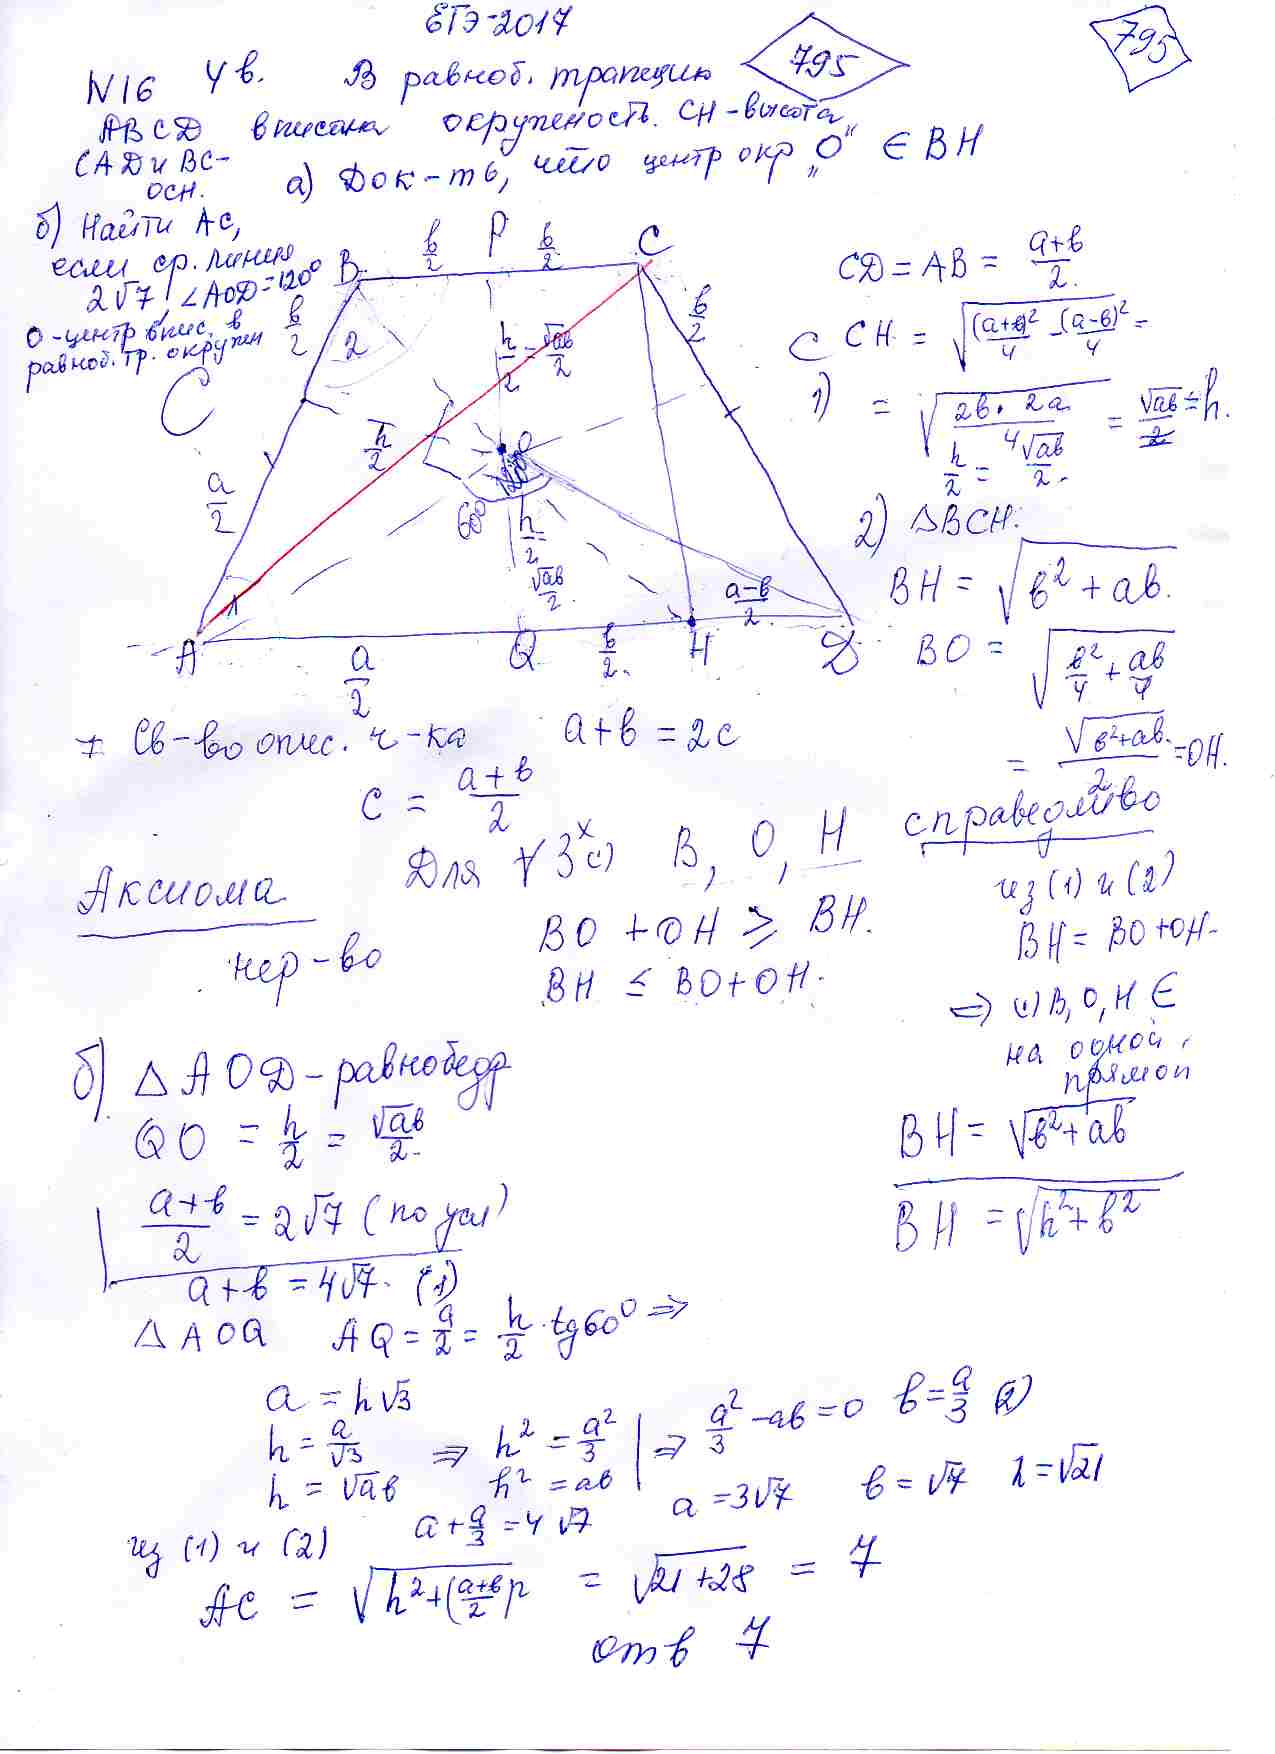 ЕГЭ-2017
N16 4в. В равноб. трапецию 795
795
ABCD вписана окружность. CH-высота
(AD и BC-
осн.
а) Док-ть, что центр окр „O" ∈ BH
б) Найти AC,
если ср. линия
2√7, ∠AOD=120°
O-центр впис. в
равноб. тр. окружн
B b/2 P b/2 C
b/2 2 h/2 = √ab/2 b/2
C
a/2 h/2 O 120°
60° h/2 = √ab/2
1 (a-b)/2
A a/2 Q b/2 H D
CD = AB = (a+b)/2.
CH = √((a+b)²/4 - (a-b)²/4) =
1) = √(2b·2a/4) = √ab = h.
h/2 = √ab/2.
2) △BCH.
BH = √(b² + ab).
BO = √(b²/4 + ab/4)
= √(b²+ab)/2 = OH.
Св-во опис. ч-ка a+b = 2c
c = (a+b)/2
Аксиома Для ∀ 3х (·) B, O, H справедливо
нер-во BO + OH ≥ BH.
BH ≤ BO + OH.
из (1) и (2)
BH = BO + OH.
⇒ (·) B, O, H ∈
на одной
прямой
BH = √(b²+ab)
BH = √(h²+b²)
б) △AOD-равнобедр
QO = h/2 = √ab/2.
(a+b)/2 = 2√7 (по усл)
a+b = 4√7. (1)
△AOQ AQ = a/2 = h/2 · tg60° ⇒
a = h√3
h = a/√3 ⇒ h² = a²/3 | ⇒ a²/3 - ab = 0 b = a/3 (2)
h = √ab h² = ab a = 3√7 b = √7 h = √21
из (1) и (2) a + a/3 = 4√7
AC = √(h²+((a+b)/2)²) = √(21+28) = 7
отв 7